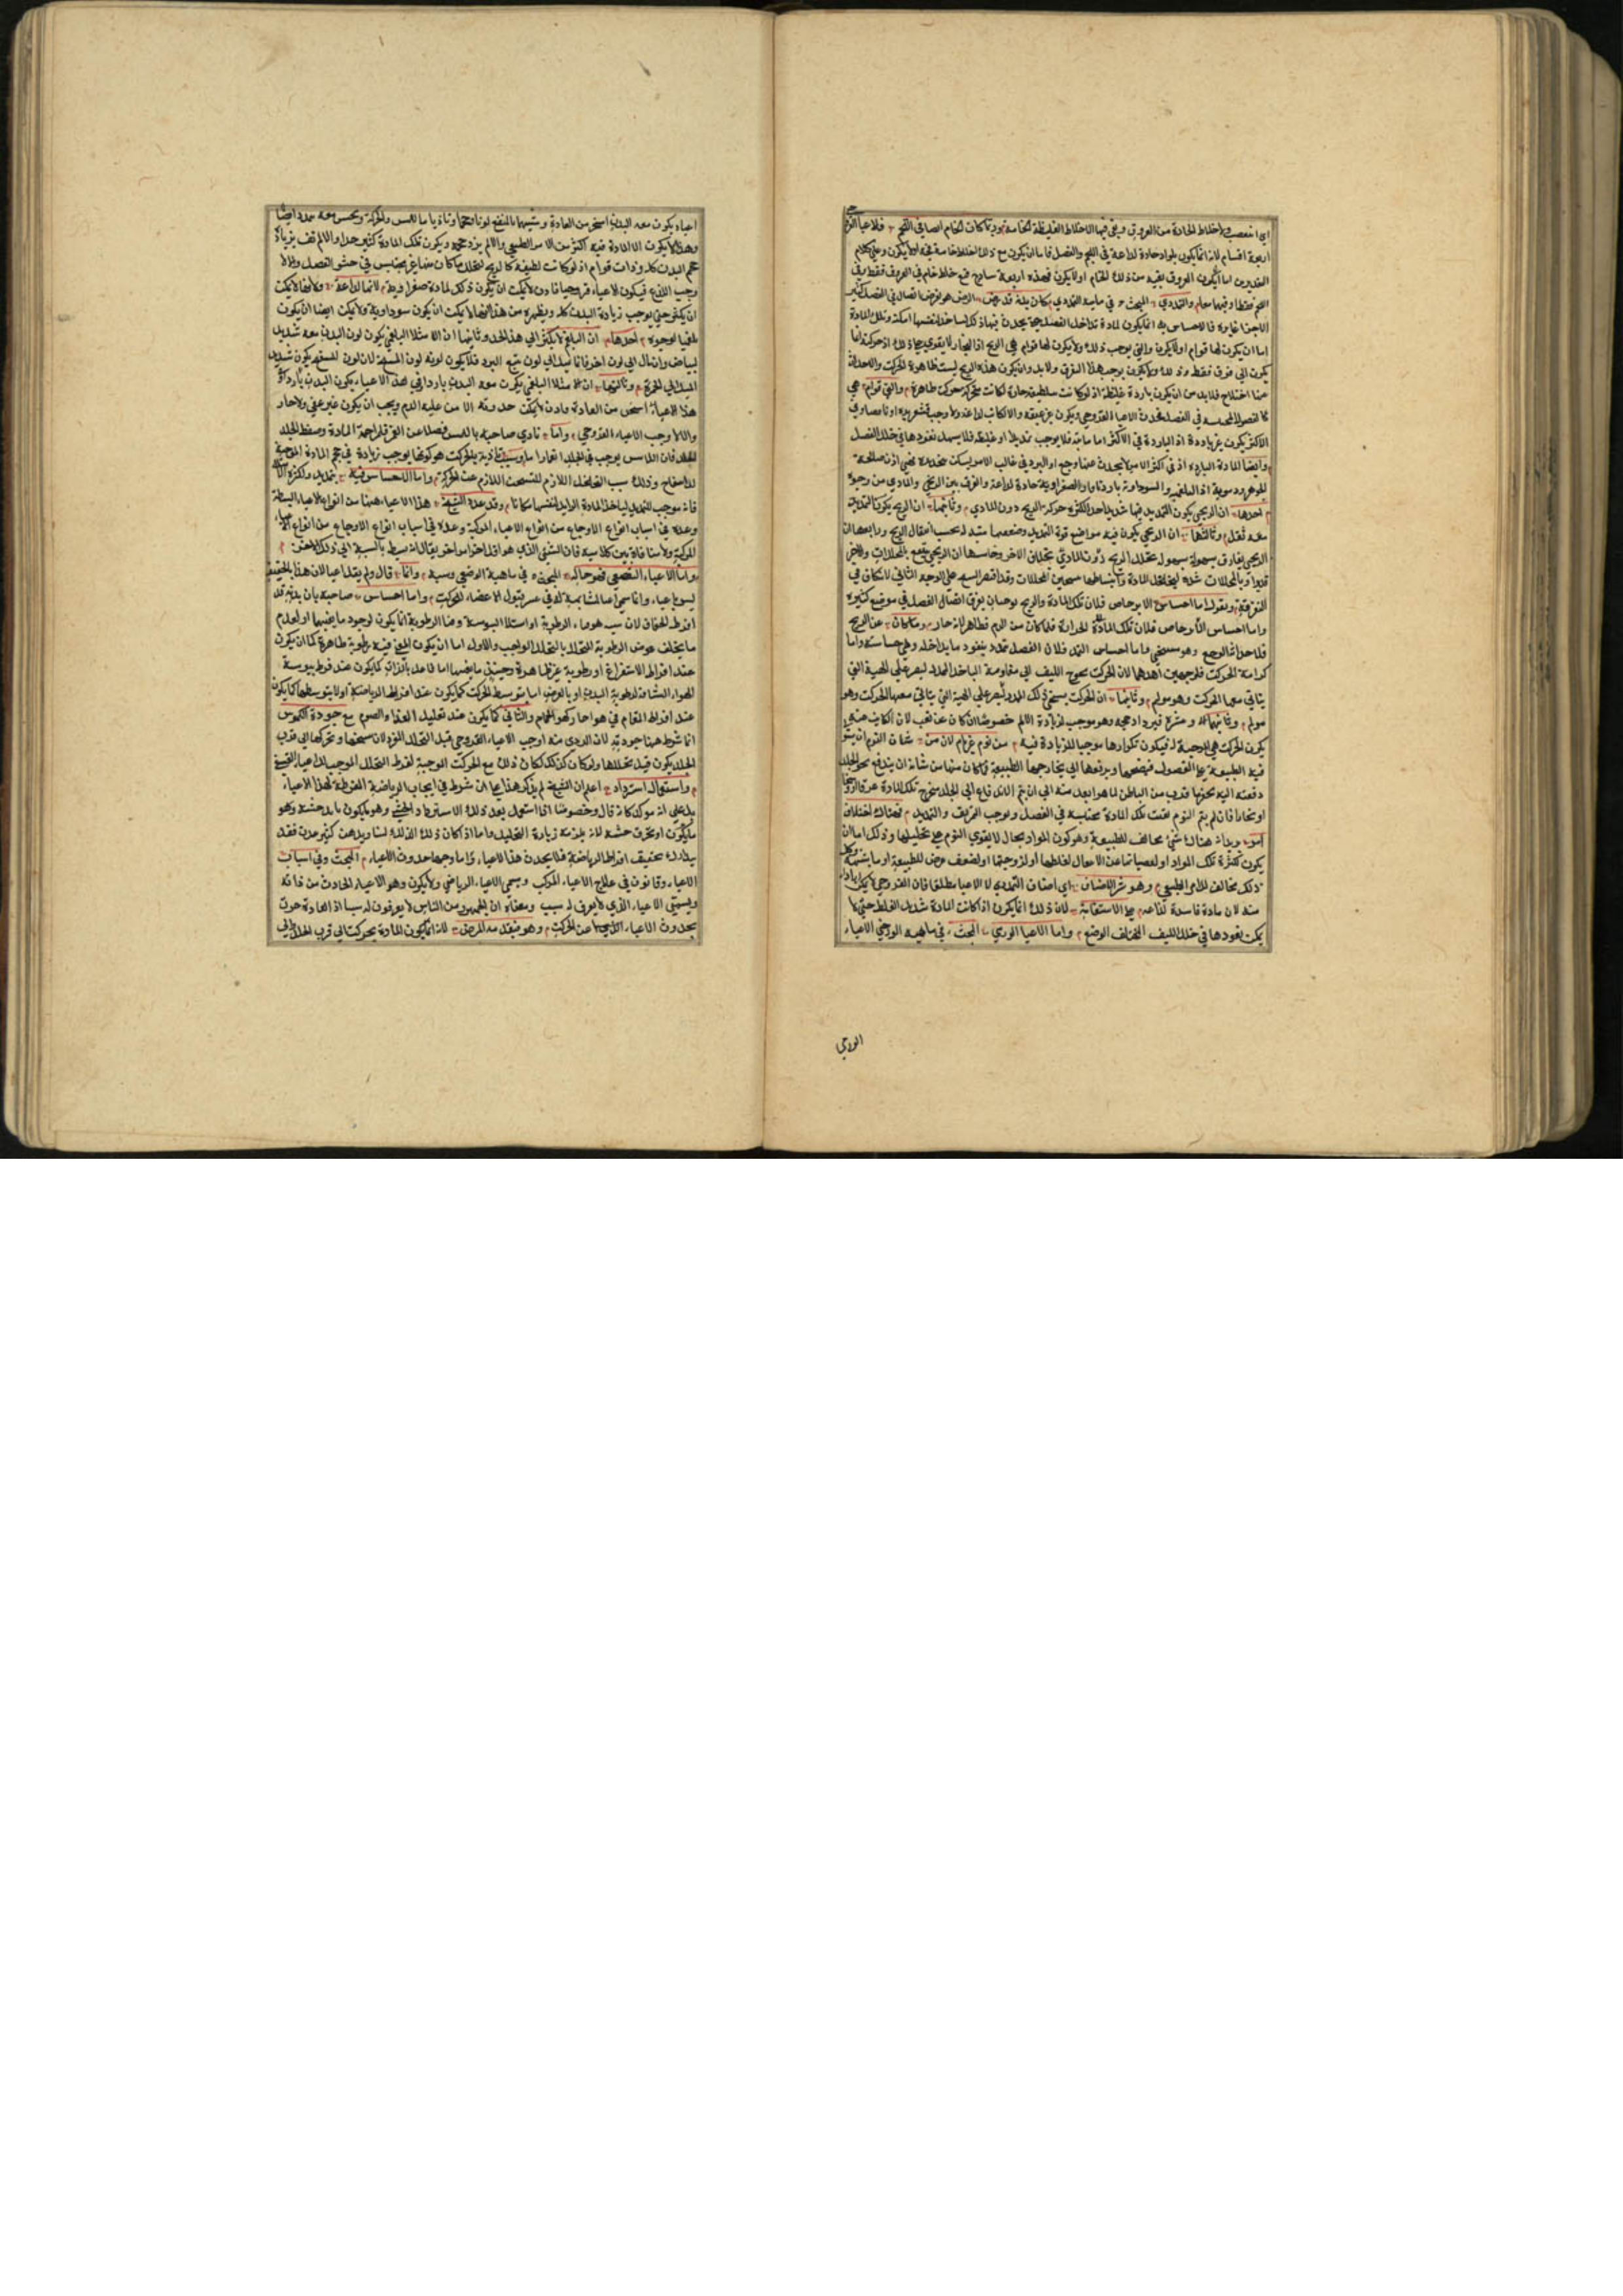 اي انفصب الاخلاط الحادة من العروق وبقي فيها الاخلاط الغليظة الخامة وربما كانت الخام ايضا في اللحم فلاعيا القروحي
اربعة اقسام لانه انما يكون لمواد حادة لذاعة في اللحم والفصل فاما ان يكون مع ذلك اخلاط خامة في العروق او لا يكون وعلى كلام
التقديرين اما ان يكون العروق بقيه من ذلك الخام اولا يكون فهذه اربعة
اللحم فقط او فيهما معا واما التمددي البحث في ماهية التمددي كان بدنه قد رض الرض هو تفرق اتصال في الفصل كثير
الاجزا غايره فالاحساس به انما يكون لمادة تداخل الفصل بحيث يحدث فيها ذلك لتداخل لنفسها امكنة وتلك المادة
اما ان يكون لها قوام اولا يكون والتي يوجب ذلك ولا يكون لها قوام هي الريح اذ البخار لا يقوى على ذلك اذ حركته انما
يكون الى فوق فقط وذلك ولا يكون يوجب هذا التفرق ولا بد وان يكون هذه الريح ليست ظاهرة الحركة والا حدث
عنها اختلاج فلا بد من ان يكون باردة غليظة اذ لو كانت لطيفة حادة لكانت متحركة حركة ظاهرة والتي قوام هي
الاكثر يكون غير باردة اذ الباردة في الاكثر اما مايته فلا يوجب تمديدا او غليظة فلا يسهل نفوذها في خلل الفصل
وايضا المادة الباردة اذ في اكثر الامر لا يحدث عنها وجع اذ البرد في غالب الامر يسكن بتخديره فهي اذن صالحة
الجوهر ودموية اذ البلغمية والسوداوية باردتان والصفراوية حادة لذاعة والفرق بين الريحي والمادي من وجوه
احدها ان الريحي يكون التمديد فيها شديدا جدا لكثرة حركة الريح دون المادي وثانيها ان الريحي يكون التمديد
معه ثقل وثالثها ان الريحي يكون فيه مواضع قوة التمديد وضعفها متبدلة بحسب انتقال الريح ورابعها ان
الريحي يفارق بسهولة سهولة تحلل الريح دون المادي بخلاف الاخر وخامسها ان الريحي ينتفع بالمحللات والاخر
واما احساس التاوحاص فلان تلك المادة الحرارة فلما كان من الدم فظاهر لانه حار وما كان عن الريح
فلاحداث الوجع وهو مسخن واما احساس التمدد فلان الفصل تمدد بنفوذ ما يداخله وهي حساسة واما
كراهة الحركة فلوجهين احدهما لان الحركة تحوج الليف الى مقاومة المداخل الممدد ليصير على الهيئة التي
يتاتى معها الحركة وهو مولم وثانيهما ان الحركة يسخن ذلك الممدد
يكون الحركة هي الموجبة له فيكون تكرارها موجبا للزيادة فيه من نوم غير تام لان من شان النوم ان يستولي
فيه الطبيعة على الفضول فينضجها ويدفعها الى مخارجها الطبيعية فما كان منها من شانه ان يندفع نحو الجلد
دفعته اليه
او بخارا فان لم يتم النوم بقيت تلك المادة محتبسة في الفصل ويوجب التفريق والتمديد فهناك اختلاف
امور وبدانه هناك شي مخالف للطبيعة وهو كون المواد بحال لا يقوى النوم على تحليلها وذلك اما ان
يكون لكثرة تلك المواد او لعصيانها عن الانحلال لغلظها او لزوجتها او لضعف عرض للطبيعة او ما يشبهه وكل
ذلك مخالف للامر الطبيعي وهو شر الاصناف اي اصناف التمددي لا الاعيا مطلقا فان القروحي لا يكون اردا
منه لان مادة فاسدة لذاعة على الاستقامة لان ذلك انما يكون اذا كانت المادة شديدة الغلظ حتى لا
يمكن نفوذها في خلل الليف المختلف الوضع واما الاعيا الورمي البحث في ماهية الورمي الاعياء
الورمي
اعياء يكون معه البدن اسخن من العادة وشبيها بالمنتفخ لونا وحجما وتاذيا باللمس والحركة ويحس معه بتمدد ايضا
وهذا لا يكون الا المادة فيه اكثر من الامر الطبيعي والا لم يزد حجمه ويكون تلك المادة كثيرة جدا والا لم تف بزيادة
حجم البدن كله وذات قوام اذ لو كانت لطيفة كالريح لتحلل ما كان منها غير محتبس في حشو الفصل والا
وجب اللذع فيكون الاعياء قروحيا فاذن لا يمكن ان يكون ذلك لمادة صفراوية لانها لذاعة ولانها لا يمكن
ان يكثر حتى يوجب زيادة البدن كله ويظهره من هذا انها لا يمكن ان يكون سوداوية ولا يمكن ايضا ان يكون
بلغميا لوجوه احدها ان البلغم لا يكثر الى هذا الحد وثانيها ان الامتلا البلغمي يكون لون البدن معه شديد
البياض وان مال الى لون اخر فانما يميل الى لون يتبع البرد فلا يكون لونه لون المنتفخ لان لون المنتفخ يكون شديد
الميل الى الحمرة وثالثها ان الامتلا البلغمي يكون معه البدن باردا في هذا الاعياء يكون البدن
هذا الاعياء اسخن من العادة فاذن لا يمكن حدوثه الا من غلبة الدم ويجب ان يكون غير عفن ولا حار
والا لاوجب الاعياء القروحي واما تاذي صاحبه باللمس فضلا عن الغمز فلمزاحمة المادة وضغط الجلد
الجلد فان اللامس يوجب في الجلد انغمارا ما وسبب تاذيه بالحركة هو كونها يوجب زيادة في حجم المادة الموجبة
للانتفاخ وذلك بسبب التخلخل اللازم للتسخين اللازم عن الحركة واما الاحساس فيه بتمدد ولكثرة المادة
فانه موجب للتمديد ليداخل المادة الزايدة لنفسها مكانا وقد عده الشيخ هذا الاعياء هنا من انواع الاعياء البسيطة
وعده في اسباب انواع الاوجاع من انواع الاعياء المركبة وعده في اسباب انواع الاوجاع من انواع الاعياء
المركبة ولا منافاة بين كلاميه فان الشي الذي هو اقل اجزا من اخر يقال انه بسيط بالنسبة الى ذلك الاخر
واما الاعياء القشفي فهو حالة البحث في ماهية الورمي وسببه وانما قال ولم يقل اعيا لان هذا بالحقيقة
ليس باعياء وانما سمي اعيا لمشابهته له في عسر قبول الاعضاء للحركة واما احساس صاحبه بان بدنه قد
افرط به الجفاف لان سببه هو فناء الرطوبة او استيلا اليبوسة وفنا الرطوبة انما يكون لوجود ما يفنيها او لعدم
ما يخلف عوض الرطوبة المتحللة بالتحلل الواجب والاول اما ان يكون المفني فيه رطوبة ظاهرة كما ان يكون
عند افراط الاستفراغ او رطوبة غير ظاهرة وحينئذ ما يفنيها اما فاعل بالذات كما يكون عند فرط يبوسة
الهواء النشافة لرطوبة البدن او بالعرض اما بتوسط الحركة كما يكون عند افراط الرياضة او لا بتوسطها كما يكون
عند افراط المقام في هواء حار كهواء الحمام والثاني كما يكون عند تقليل الغذاء والصوم مع جودة الكيموس
انما شرط ههنا جودته لان الردي منه اوجب الاعياء القروحي قبل التحلل المفرط لان تسخنها وتحركها الى قرب
الجلد يكون قبل تحللها ولو كان كذلك لكان ذلك مع الحركة الموجبة لفرط التحلل الموجب للاعياء القشفي
واستعمال استرداد اعلم ان الشيخ لم يذكر هذا على انه شرط في ايجاب الرياضة المفرطة لهذا الاعياء
بل على انه موكد كانه قال وخصوصا اذا استعمل بعد ذلك الاسترداد الخشن وهو ما يكون باليد خشنة وهو
ما يكون او بخرق خشنة لانه يلزمه زيادة التحليل واما اذا كان ذلك الدلك لينا وبدهن كثير عذب فقد
يتدارك تجفيف افراط الرياضة فلا يحدث هذا الاعياء واما وجه حدوث الاعياء البحث وفي اسباب
الاعياء وقانون في علاج الاعياء المركب ويسمى الاعياء الرياضي ولا يكون وهو الاعياء الحادث من ذاته
ويسمى الاعياء الذي لا يعرف له سبب ومعناه ان الجمهور من الناس لا يعرفون له سببا اذ العادة جرت
بحدوث الاعياء عن الحركة وهو مقدمة المرض لانه انما يكون المادة يحركت الى قرب الجلد والى